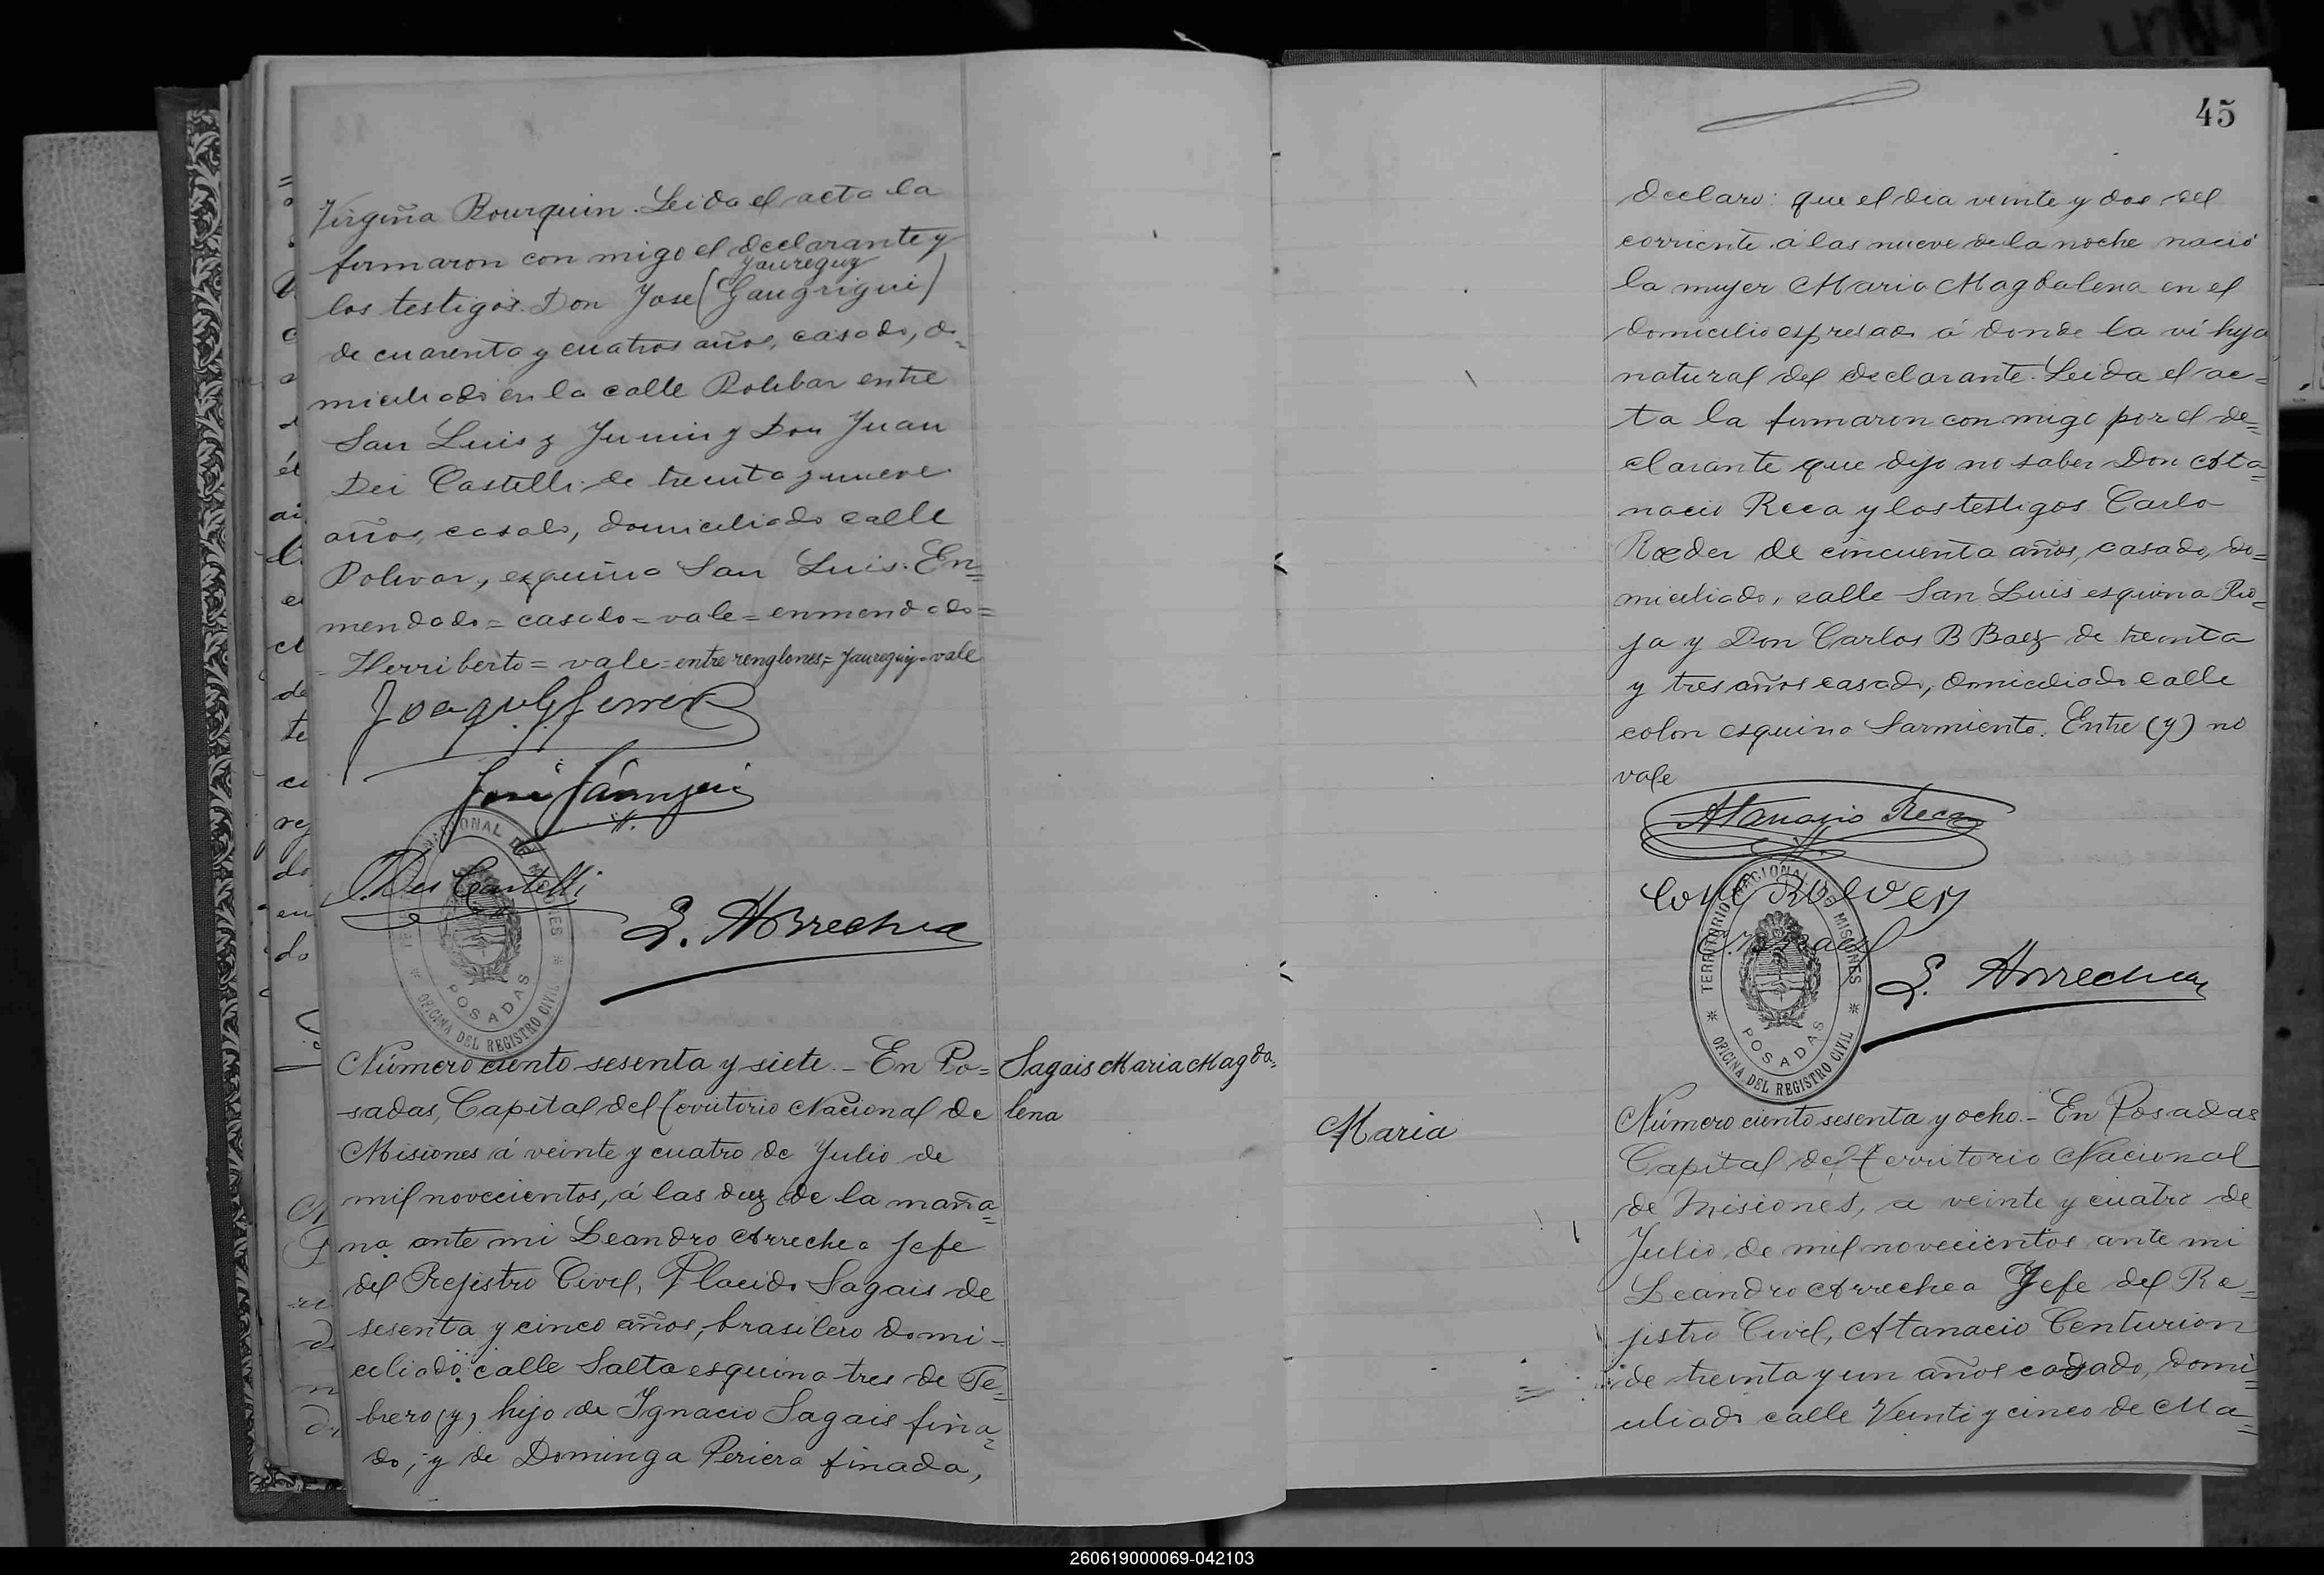 Virgiña Bourquin. Leida el acta la
firmaron con migo el declarante y
Yaureguy
los testigos Don Jose (Gaugrigui)
de cuarenta y cuatros años, casado, do=
miciliado en la calle Bolibar entre
San Luis y Junin y Don Juan
Dei Castelli de treinta y nueve
años, casado, domiciliado calle
Bolivar, esquina San Luis. En=
mendado = casado = vale = enmendado =
= Herriberto = vale = entre renglones = Yaureguy = vale
José Jáuregui
Dei Castelli
L. Arrechea
TERRITORIO NACIONAL DE MISIONES
OFICINA DEL REGISTRO CIVIL
POSADAS
Número ciento sesenta y siete. - En Po=
sadas, Capital del Territorio Nacional de
Misiones á veinte y cuatro de Julio de
mil novecientos, á las diez de la maña=
na ante mi Leandro Arrechea Jefe
del Rejistro Civil, Placido Sagais de
sesenta y cinco años, brasilero domi-
ciliado calle Salta esquina tres de Fe=
brero (y) hijo de Ygnacio Sagais fina=
do, y de Dominga Periera finada,
Sagais Maria Magda=
lena
45
declaro: que el dia veinte y dos del
corriente á las nueve de la noche nació
la mujer Maria Magdalena en el
domicilio espresado á donde la ví hija
natural del declarante. Leida el ac=
ta la firmaron con migo por el de=
clarante que dijo no saber Don Ata=
nacio Reca y los testigos Carlo
Rœder de cincuenta años, casado, do=
miciliado, calle San Luis esquina Rio=
ja y Don Carlos B Baez de treinta
y tres años casado, domiciliado calle
colon esquina Sarmiento. Entre (y) no
vale
Atanasio Reca
L. Arrechea
TERRITORIO NACIONAL DE MISIONES
OFICINA DEL REGISTRO CIVIL
POSADAS
Maria
Número ciento sesenta y ocho. - En Posadas
Capital del Territorio Nacional
de Misiones, a veinte y cuatro de
Julio de mil novecientos ante mi
Leandro Arrechea Jefe del Re=
jistro Civil, Atanacio Centurion
de treinta y un años casado, domi=
ciliado calle Veinti y cinco de Ma=
260619000069-042103